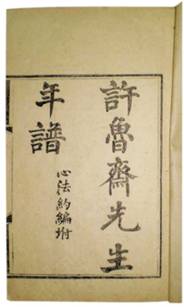 許魯齋先生
年譜
心法約編坿